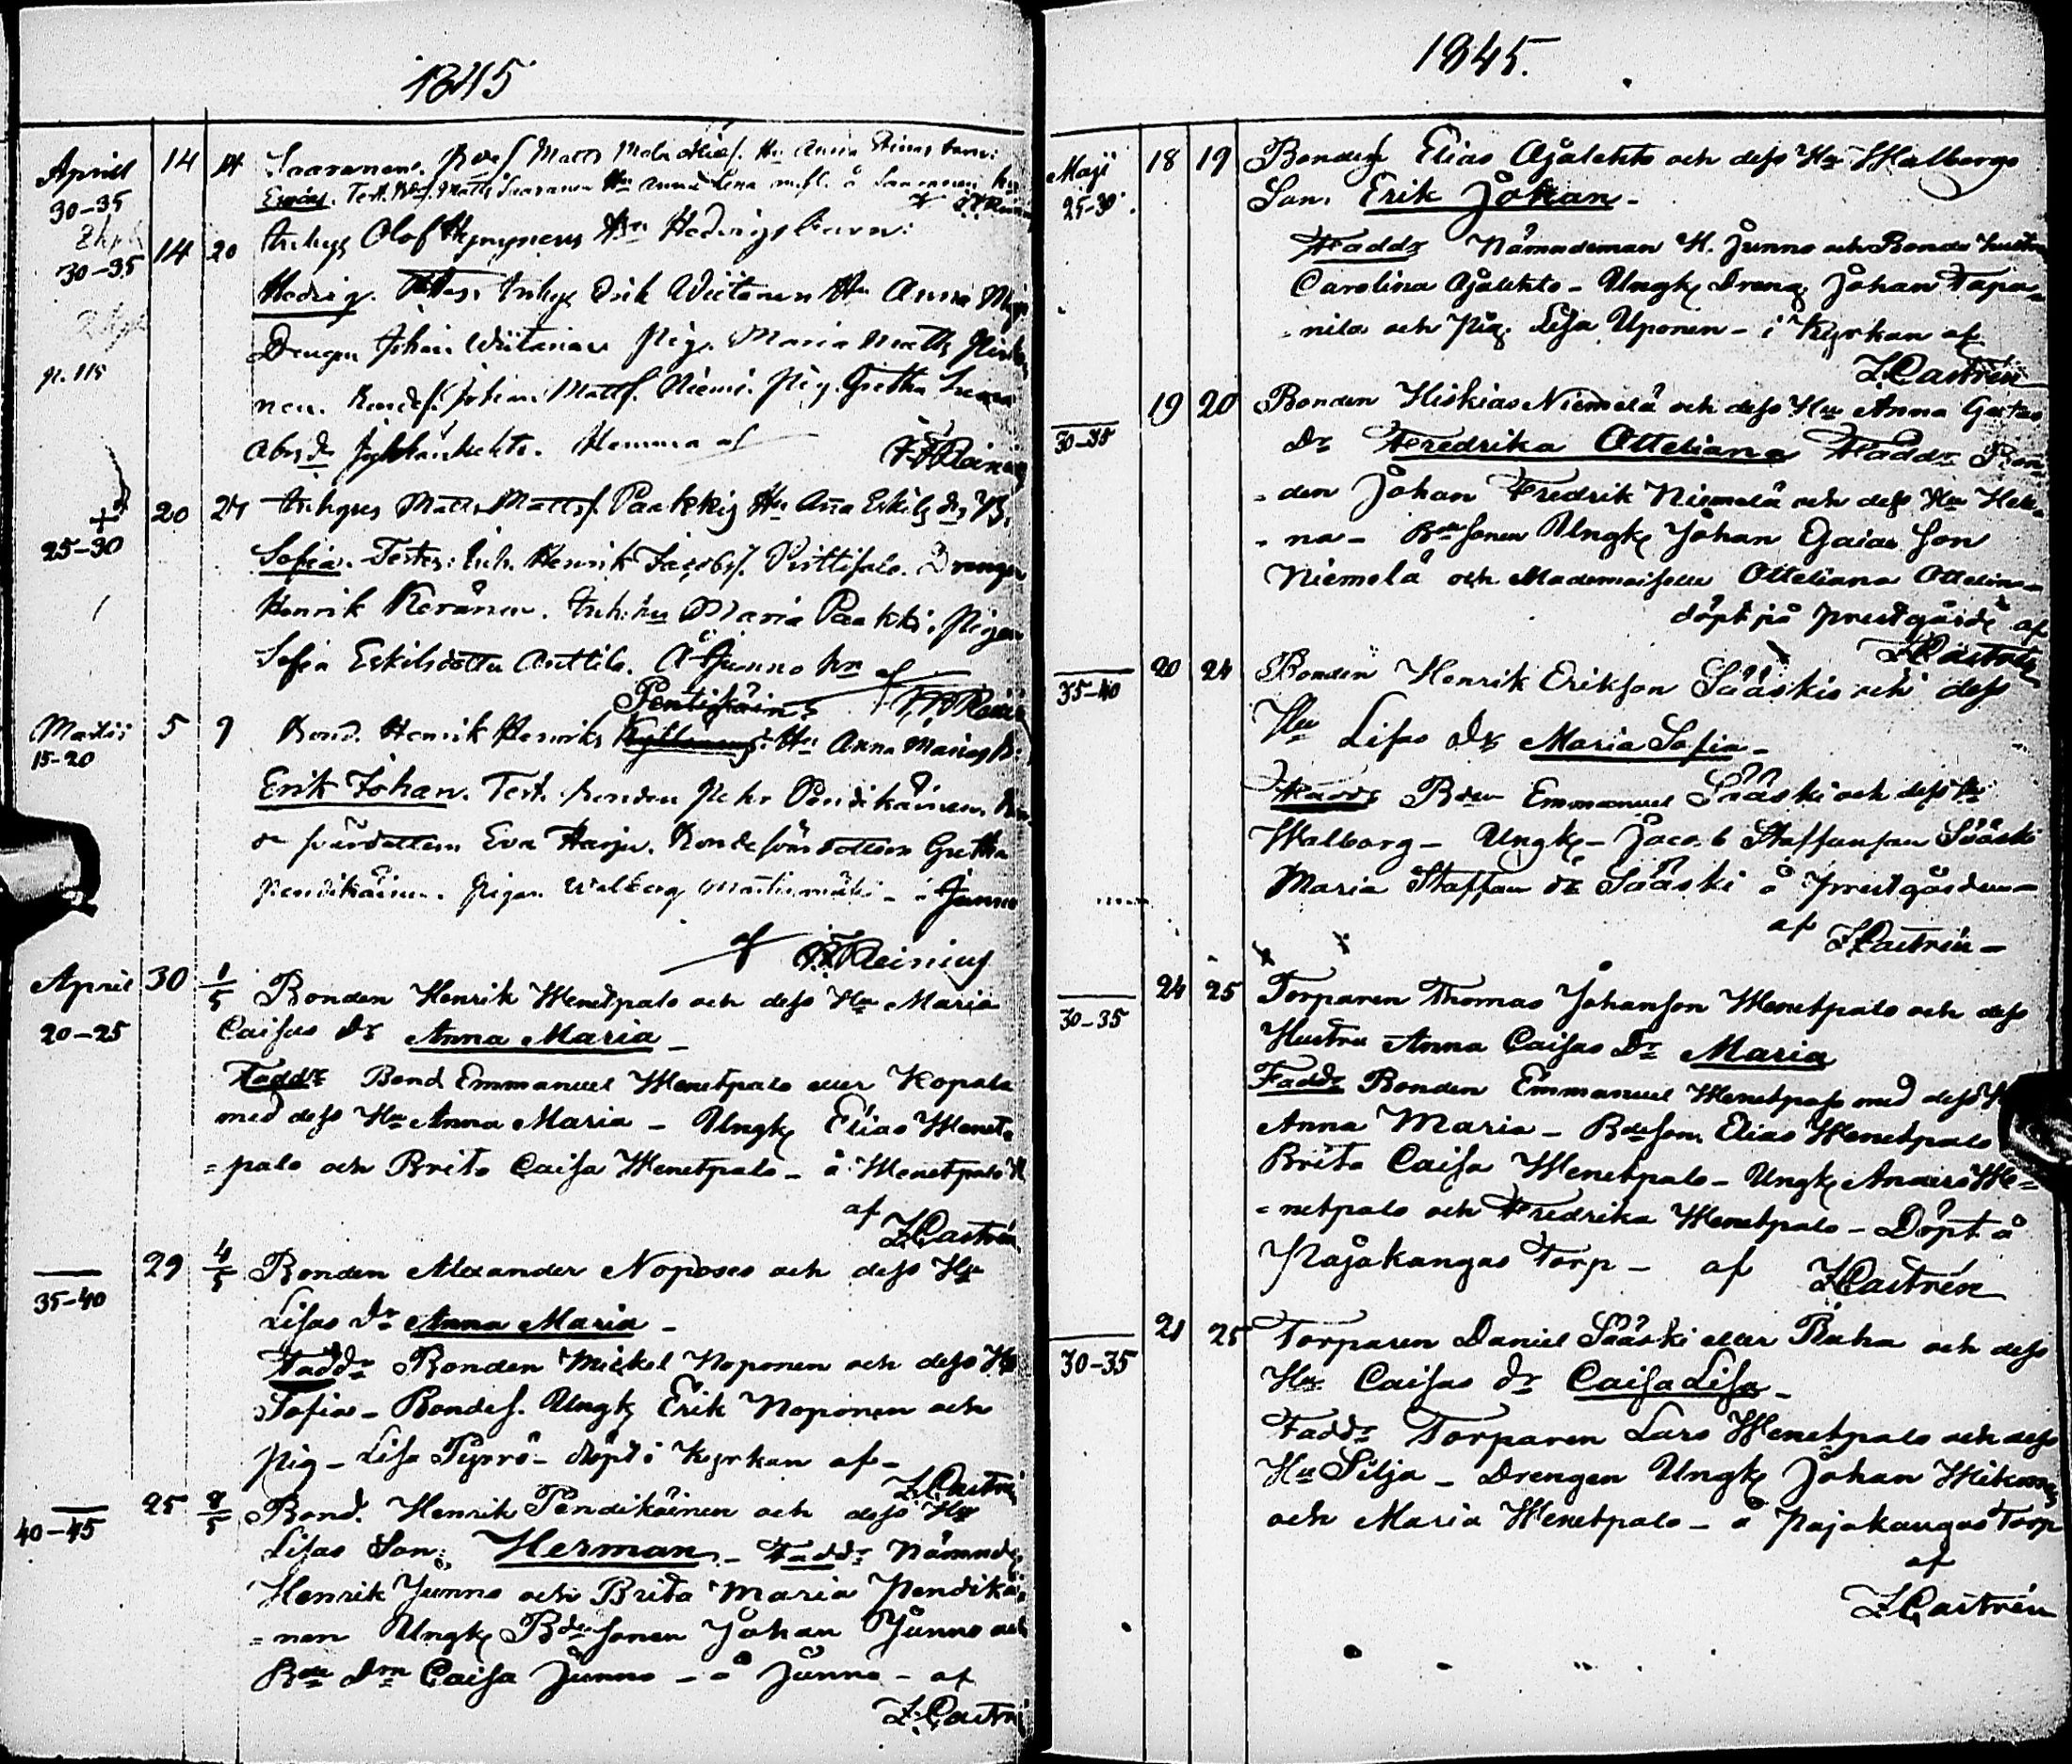 1845
Aprill 14 14 Saaranens. Matts Hu Anna Stinas barn:
30-35 Test. Matts Saaranen Hu Anna Lena å Saaranen
14 20 Inhys Olof Hyyrynens Hu Hedvigs barn:
30-35
Hedvig. Inhys Erik Wiitanen Hu Anna
Drengen Johan Wiitanen Pig. Maria Matts
p. 115
nen. Bondes. Johan Mattss. Niemi. Pig. Gretha
Abrsdr Hemma af
+ 20 24 Inhyses Matts Mattss. Paakkis Hu Ana Eskilsdrs
25-30
Sofia. Testes: Inh. Henrik Jacobss. Pirttisalo. Drengen
Henrik Keränen. Inh: hu Maria Paakki, Pigan
Sofia Eskilsdotter Anttila. Å Junno hn af
Pentikäins
Martii 5 9 Bond. Henrik Henriks Hu Anna Marias
15-20
Erik Johan. Test. bonden Pehr Pendikäinen
Eva Harju. Bondesöndottern Gretha
Pendikäinen. Pigan Walborg Martimäki - i Junno
af F.F. Reinius
April 30 1/5 Bonden Henrik Wenetpalo och dess Hu Maria
20-25 Caisas dr Anna Maria -
Faddr Bond Emmanuel Wenetpalo eller Kopala
med dess Hu Anna Maria - Ungk Elias Wenet-
=palo och Brita Caisa Wenetpalo - å Wenetpalo
af
Z. Castrén
29 4/5 Bonden Alexander Noposes och dess Hu
35-40
Lisas dr Anna Maria -
Faddr Bonden Mickel Noponen och dess Hu
Sofia - Bondes. Ungk Erik Noponen och
Pig - Lisa Pyrrö - döpt i Kyrkan af -
Z. Castrén
25 8/5 Bond. Henrik Pendikäinen och dess Hu
40-45
Lisas Son: Herman - Faddr Nämnd
Henrik Junno och Brita Maria Pendikäi
=nen Ungk Bdesonen Johan Junno och
Bde Drn Caisa Junno - å Junno - af
Z. Castrén
1845.
Maji 18 19 Bondens Elias Ojalehto och dess Hu Walborgs
25-30 Son. Erik Johan -
Faddr Nämndeman H. Junno och Bonde hustru
Carolina Ojalehto - Ungk Dreng Johan Tapa-
-nila och Pig. Lisa Uponen - i Kyrkan af
Z. Castrén
19 20 Bonden Hiskias Niemelä och dess Hu Anna Gretas
30-35 Dr Fredrika Otteliana Faddr Bon-
-den Johan Fredrik Niemelä och dess Hu Hele-
-na - Bdesonen Ungk Johan Esaias Son
Niemelä och Mademoiselle Otteliana
döpt på prestgård af
Z. Castrén
20 24 Bonden Henrik Erikson Sääskis och dess
35-40
Hu Lisas dr Maria Sofia -
Faddr Bden Emmanuel Sääski och dess Hu
Walborg - Ungk - Jacob Staffanson Sääski
Maria Staffan dr Sääski å Prestgården -
af
Z. Castrén -
24 25 Torparen Thomas Johanson Wenetpalo och dess
30-35
Hustru Anna Caisas Dr Maria
Faddr Bonden Emmanuel Wenetpalo med dess
Anna Maria - Bdeson Elias Wenetpalo
Brita Caisa Wenetpalo - Ungk Anders We=
=netpalo och Fredrika Wenetpalo - Döpt å
Pajakangas Torp - af Z. Castrén
21 25 Torparen Daniel Sääski eller Raha och dess
30-35
Hu Caisas dr Caisa Lisa -
Faddr Torparen Lars Wenetpalo och dess
Hu Silja - Drengen Ungk Johan
och Maria Wenetpalo - å Pajakangas Torp
af
Z. Castrén